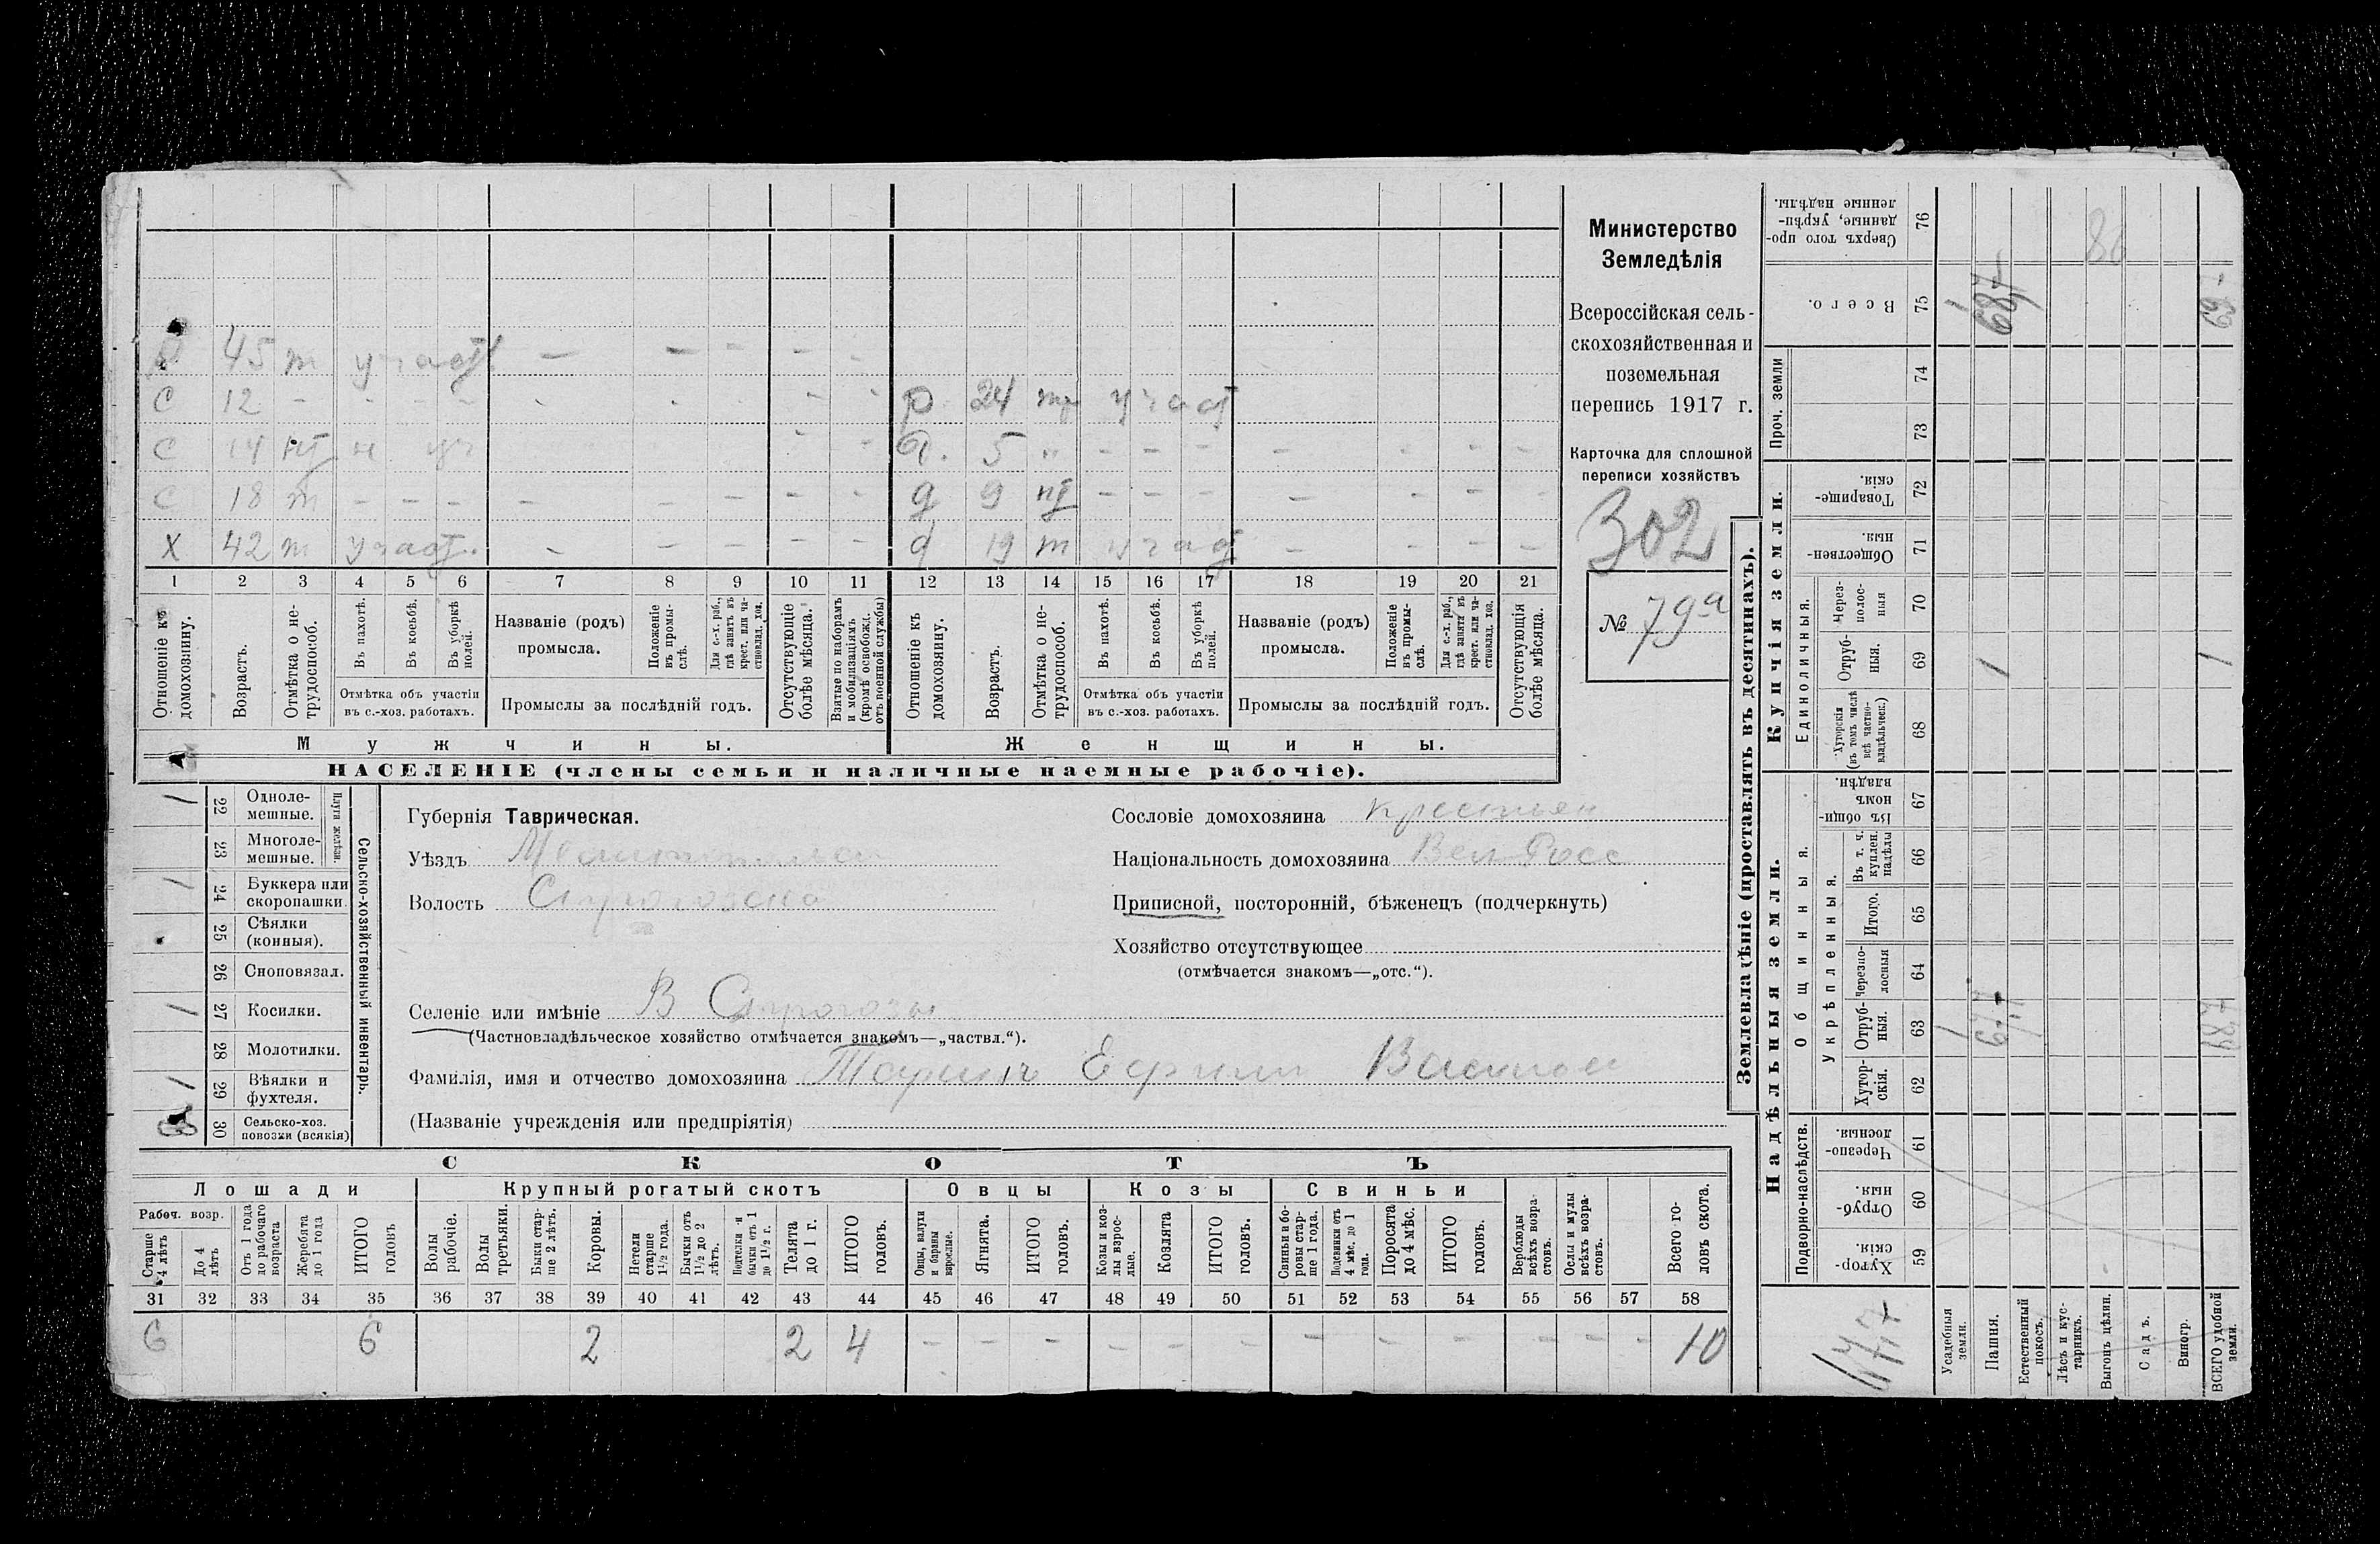 Министерство
Земледѣлія
Всероссійская сель-
скохозяйственная и
поземельная
перепись 1917 г.
Карточка для сплошной
переписи хозяйствъ
302
№ 79а
р 45 т участ — — — — —
С 12 — — — — — — — — — р 24 тр участ
С 14 нт н уч — — д. 5 „ — — — — — — —
С 18 т — — — — — — — — д 9 нт — — — — — — —
Х 42 т участ. — — — — — д 19 т участ — — — —
1 2 3 4 5 6 7 8 9 10 11 12 13 14 15 16 17 18 19 20 21
Отношеніе къ домохозяину.
Возрастъ.
Отмѣтка о не-трудоспособ.
Въ пахотѣ.
Въ косьбѣ.
Въ уборкѣ полей.
Отмѣтка объ участіи
въ с.-хоз. работахъ.
Названіе (родъ)
промысла.
Положеніе въ промы-слѣ.
Для с.-х. раб., гдѣ занятъ въ крест. или ча-стновлад. хоз.
Промыслы за послѣдній годъ.
Отсутствующіе болѣе мѣсяца.
Взятые по наборамъ и мобилизаціямъ (кромѣ освобожд. отъ военной службы)
Отношеніе къ домохозяину.
Возрастъ.
Отмѣтка о не-трудоспособ.
Въ пахотѣ.
Въ косьбѣ.
Въ уборкѣ полей.
Отмѣтка объ участіи
въ с.-хоз. работахъ.
Названіе (родъ)
промысла.
Положеніе въ промы-слѣ.
Для с.-х. раб., гдѣ занятъ въ крест. или ча-стновлад. хоз.
Промыслы за послѣдній годъ.
Отсутствующія болѣе мѣсяца.
Мужчины. Женщины.
НАСЕЛЕНІЕ (члены семьи и наличные наемные рабочіе).
Сельско-хозяйственный инвентарь.
Плуги желѣзн.
1 22 Одноле-мешные.
23 Многоле-мешные.
1 24 Буккера или скоропашки.
25 Сѣялки (конныя).
26 Сноповязал.
1 27 Косилки.
28 Молотилки.
1 29 Вѣялки и фухтеля.
30 Сельско-хоз. повозки (всякія)
Губернія Таврическая.
Уѣздъ Мелитопольск
Волость
Селеніе или имѣніе В
(Частновладѣльческое хозяйство отмѣчается знакомъ—„частвл.“).
Фамилія, имя и отчество домохозяина Ефим
(Названіе учрежденія или предпріятія)
Сословіе домохозяина крестьян
Національность домохозяина Вел Росс
Приписной, посторонній, бѣженецъ (подчеркнуть)
Хозяйство отсутствующее
(отмѣчается знакомъ—„отс.“).
СКОТЪ
Лошади Крупный рогатый скотъ Овцы Козы Свиньи
Рабоч. возр.
Старше 4 лѣтъ
До 4 лѣтъ
Отъ 1 года до рабочаго возраста
Жеребята до 1 года
ИТОГО головъ
Волы рабочіе.
Волы третьяки.
Быки стар-ше 2 лѣтъ.
Коровы.
Нетели старше 1½ года.
Бычки отъ 1½ до 2 лѣтъ.
Подтелки и бычки отъ 1 до 1½ г.
Телята до 1 г.
ИТОГО головъ.
Овцы, валухи и бараны взрослые.
Ягнята.
ИТОГО головъ.
Козы и коз-лы взрос-лые.
Козлята
ИТОГО головъ.
Свиньи и бо-ровы стар-ше 1 года.
Подсвинки отъ 4 мѣс. до 1 года.
Поросята до 4 мѣс.
ИТОГО головъ.
Верблюды всѣхъ возра-стовъ.
Ослы и мулы всѣхъ возра-стовъ.
Всего го-ловъ скота.
31 32 33 34 35 36 37 38 39 40 41 42 43 44 45 46 47 48 49 50 51 52 53 54 55 56 57 58
6 6 2 2 4 — — — — — — — — — — — — — 10
Землевладѣніе (проставлять въ десятинахъ).
Надѣльныя земли. Купчія земли. Проч. земли
Подворно-наслѣдств.
Общинныя.
Укрѣпленныя.
Единоличныя.
Хутор-скія. 59
Отруб-ныя. 60
Черезпо-лосныя. 61
Хутор-скія. 62
Отруб-ныя. 63
Черезпо-лосныя 64
Итого. 65
Въ т. ч. куплен. надѣлы 66
Въ общи-номъ владѣн. 67
Хуторскія (въ томъ числѣ всѣ частно-владѣльческ.) 68
Отруб-ныя. 69
Через-полос-ныя 70
Обществен-ныя. 71
Товарище-скія. 72
73
74
Всего. 75
Сверхъ того про-данные, укрѣп-ленные надѣлы. 76
Усадебныя земли.
Пашня.
Естественный покосъ.
Лѣсъ и кус-тарникъ.
Выгонъ цѣлин.
Садъ.
Виногр.
ВСЕГО удобной земли.